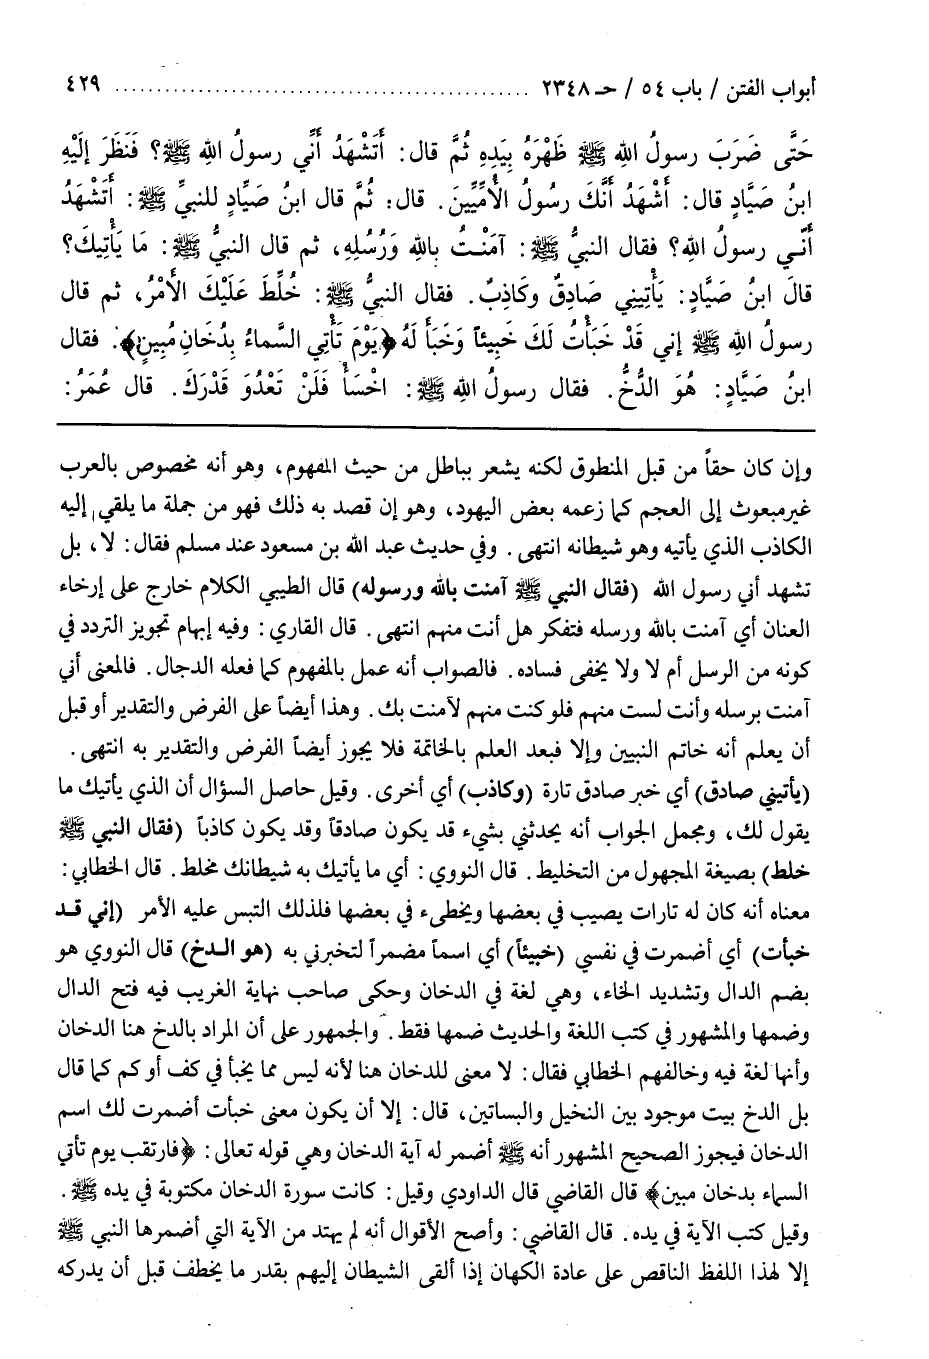 أبواب الفتن / باب ٥٤ / حـ ٢٣٤٨ ................................................ ٤٢٩
حَتَّى ضَرَبَ رسولُ اللهِ ﷺ ظَهْرَهُ بِيَدِهِ ثُمَّ قال: أَتَشْهَدُ أَنِّي رسولُ اللهِ ﷺ؟ فَنَظَرَ إلَيْهِ
ابنُ صَيَّادٍ قال: أَشْهَدُ أَنَّكَ رسُولُ الأُمِّيِّينَ. قال: ثُمَّ قال ابنُ صَيَّادٍ للنبيِّ ﷺ: أَتَشْهَدُ
أَنِّي رسولُ اللهِ؟ فقال النبيُّ ﷺ: آمَنْتُ باللهِ وَرُسُلِهِ، ثم قال النبيُّ ﷺ: مَا يَأْتِيكَ؟
قالَ ابنُ صَيَّادٍ: يَأْتِيني صَادِقٌ وَكَاذِبٌ. فقال النبيُّ ﷺ: خُلِّطَ عَلَيْكَ الأَمْرُ، ثم قال
رسولُ اللهِ ﷺ إني قَدْ خَبَأْتُ لَكَ خَبِيئاً وَخَبَأَ لَهُ ﴿يَوْمَ تَأْتِي السَّماءُ بِدُخَانٍ مُبِينٍ﴾. فقال
ابنُ صَيَّادٍ: هُوَ الدُّخُّ. فقال رسولُ اللهِ ﷺ: اخْسَأْ فَلَنْ تَعْدُوَ قَدْرَكَ. قال عُمَرُ:
وإن كان حقاً من قبل المنطوق لكنه يشعر بباطل من حيث المفهوم، وهو أنه مخصوص بالعرب
غيرمبعوث إلى العجم كما زعمه بعض اليهود، وهو إن قصد به ذلك فهو من جملة ما يلقي إليه
الكاذب الذي يأتيه وهو شيطانه انتهى. وفي حديث عبد الله بن مسعود عند مسلم فقال: لا، بل
تشهد أني رسول الله (فقال النبي ﷺ آمنت بالله ورسوله) قال الطيبي الكلام خارج على إرخاء
العنان أي آمنت بالله ورسله فتفكر هل أنت منهم انتهى. قال القاري: وفيه إبهام تجويز التردد في
كونه من الرسل أم لا ولا يخفى فساده. فالصواب أنه عمل بالمفهوم كما فعله الدجال. فالمعنى أني
آمنت برسله وأنت لست منهم فلو كنت منهم لآمنت بك. وهذا أيضاً على الفرض والتقدير أو قبل
أن يعلم أنه خاتم النبيين وإلا فبعد العلم بالخاتمة فلا يجوز أيضاً الفرض والتقدير به انتهى.
(يأتيني صادق) أي خبر صادق تارة (وكاذب) أي أخرى. وقيل حاصل السؤال أن الذي يأتيك ما
يقول لك، ومجمل الجواب أنه يحدثني بشيء قد يكون صادقاً وقد يكون كاذباً (فقال النبي ﷺ
خلط) بصيغة المجهول من التخليط. قال النووي: أي ما يأتيك به شيطانك مخلط. قال الخطابي:
معناه أنه كان له تارات يصيب في بعضها ويخطىء في بعضها فلذلك التبس عليه الأمر (إني قـد
خبأت) أي أضمرت في نفسي (خبيئاً) أي اسماً مضمراً لتخبرني به (هو الـدخ) قال النووي هو
بضم الدال وتشديد الخاء، وهي لغة في الدخان وحكى صاحب نهاية الغريب فيه فتح الدال
وضمها والمشهور في كتب اللغة والحديث ضمها فقط. والجمهور على أن المراد بالدخ هنا الدخان
وأنها لغة فيه وخالفهم الخطابي فقال: لا معنى للدخان هنا لأنه ليس مما يخبأ في كف أو كم كما قال
بل الدخ بيت موجود بين النخيل والبساتين، قال: إلا أن يكون معنى خبأت أضمرت لك اسم
الدخان فيجوز الصحيح المشهور أنه ﷺ أضمر له آية الدخان وهي قوله تعالى: ﴿فارتقب يوم تأتي
السماء بدخان مبين﴾ قال القاضي قال الداودي وقيل: كانت سورة الدخان مكتوبة في يده ﷺ.
وقيل كتب الآية في يده. قال القاضي: وأصح الأقوال أنه لم يهتد من الآية التي أضمرها النبي ﷺ
إلا لهذا اللفظ الناقص على عادة الكهان إذا ألقى الشيطان إليهم بقدر ما يخطف قبل أن يدركه